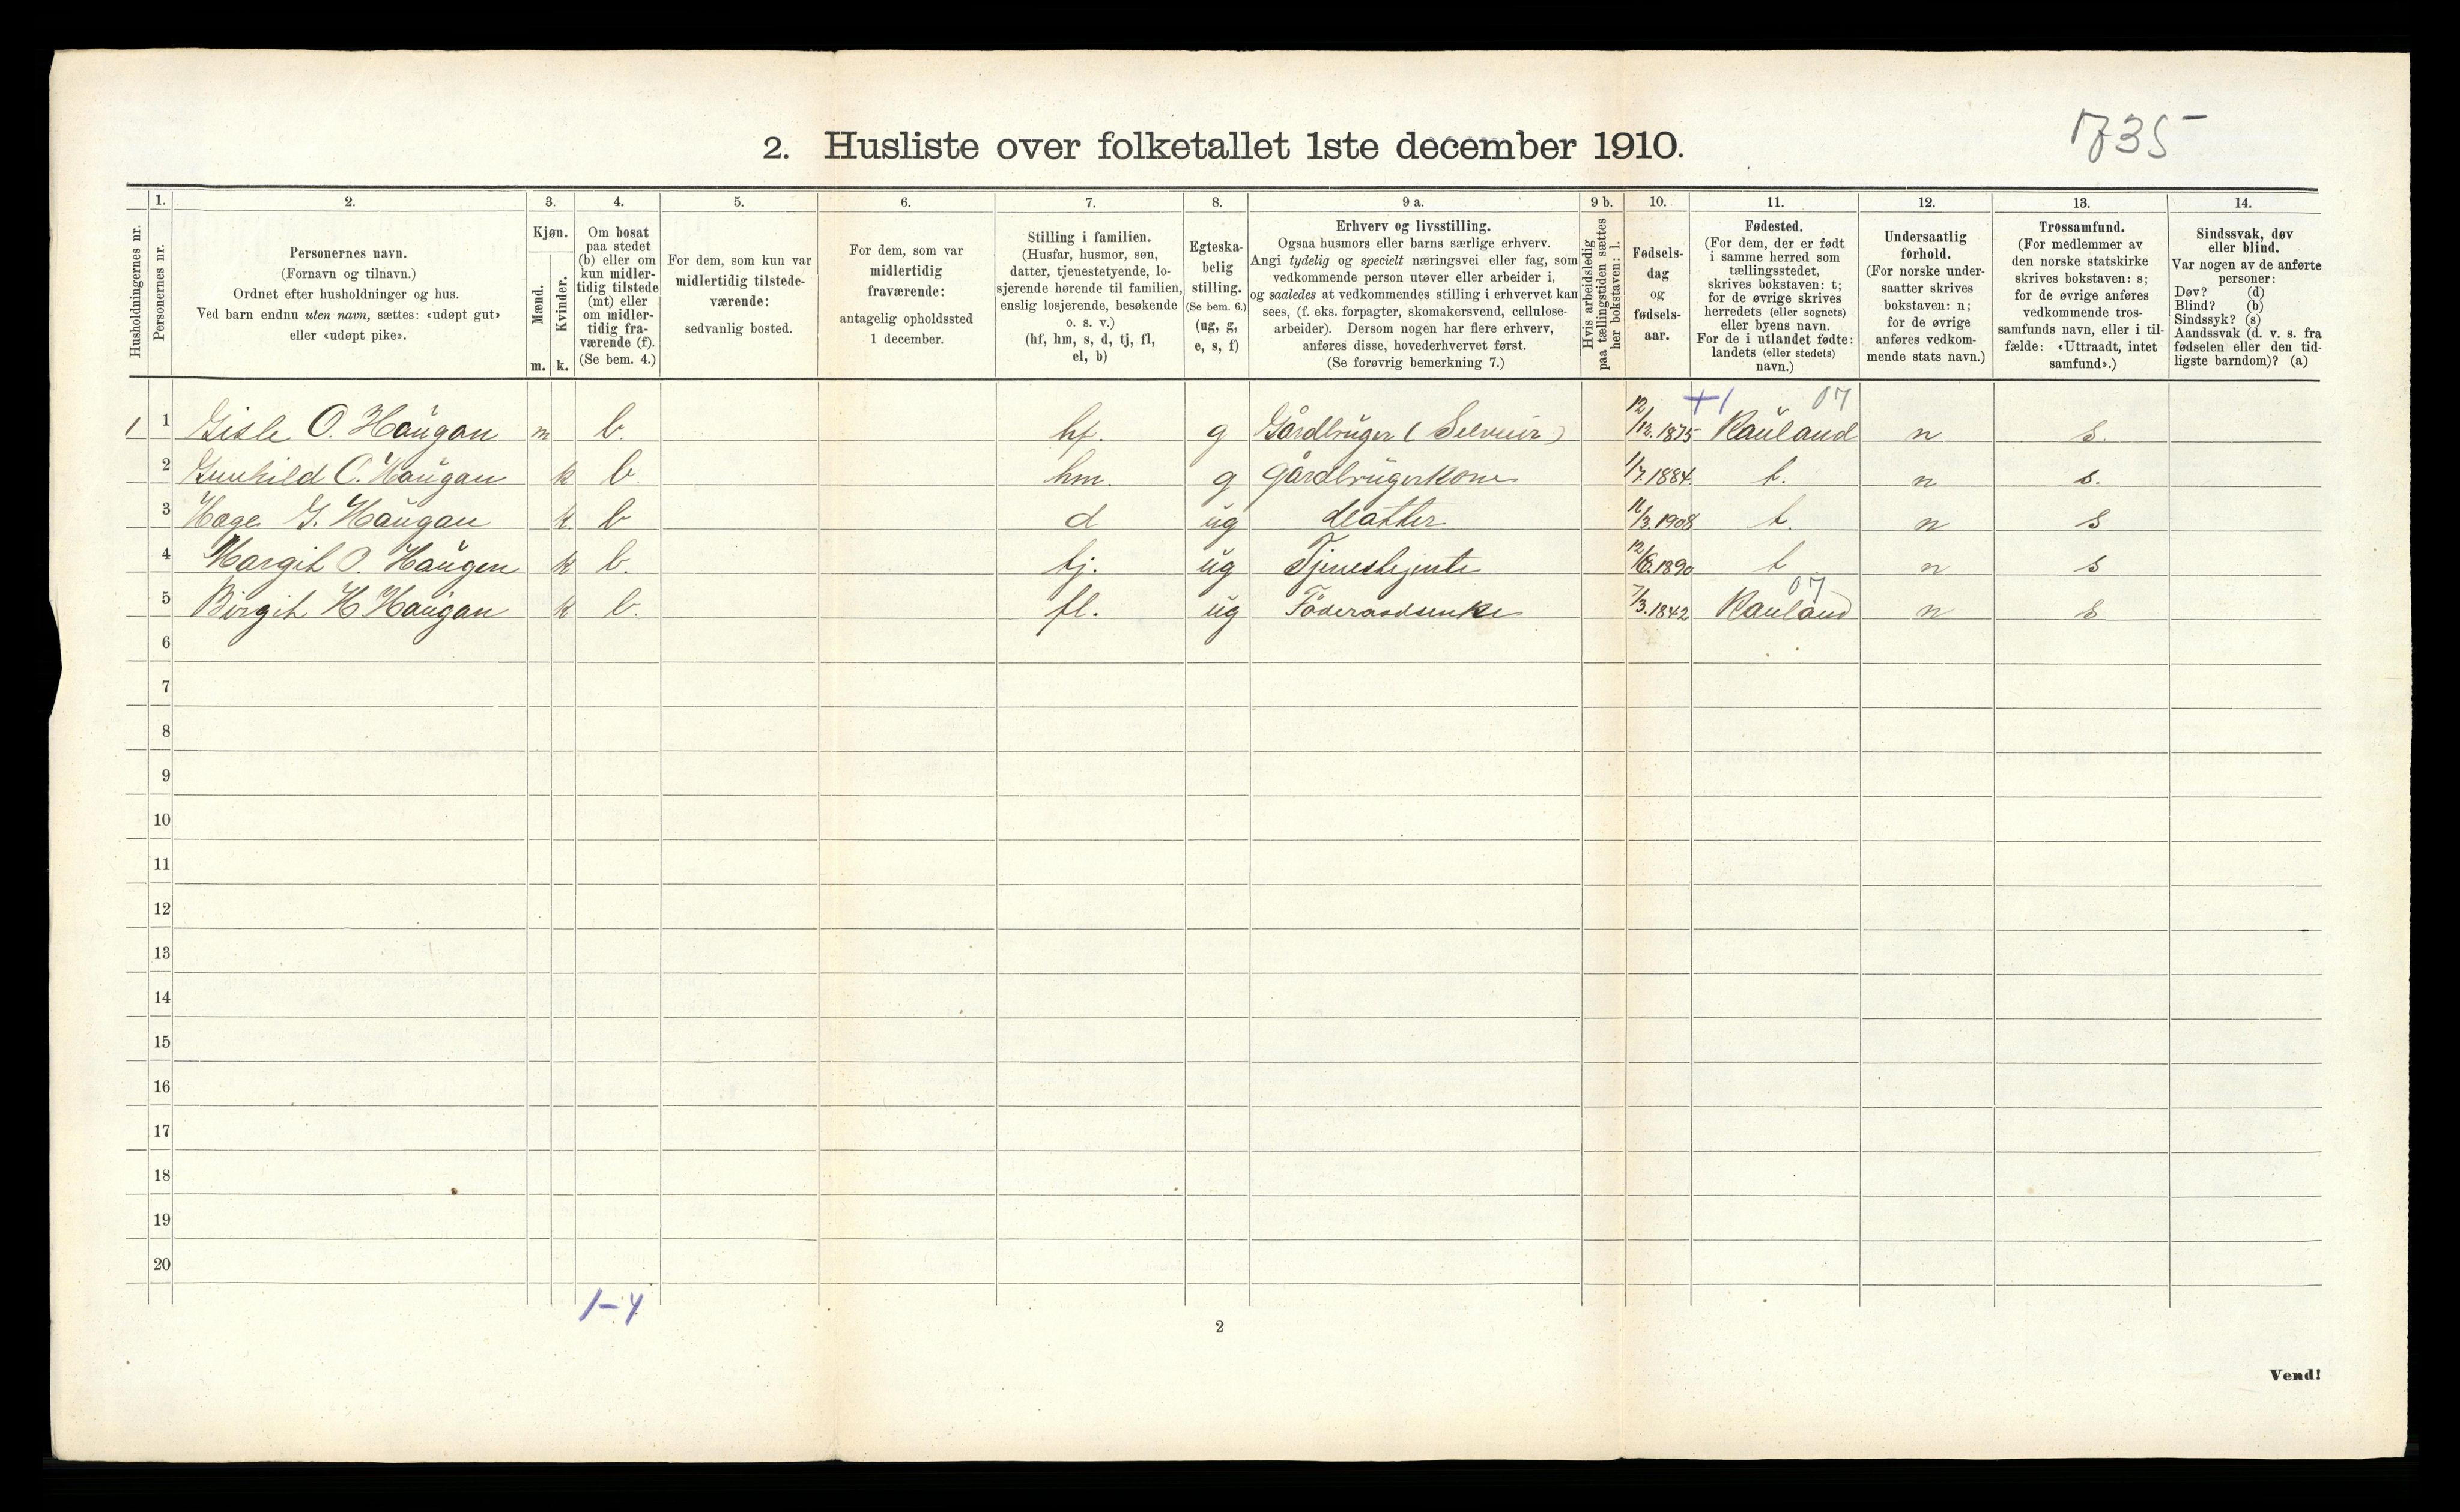 1735
2. Husliste over folketallet 1ste december 1910.
Husholdningernes nr.
1.
Personernes nr.
2.
Personernes navn.
(Fornavn og tilnavn.)
Ordnet efter husholdninger og hus.
Ved barn endnu uten navn, sættes: «udøpt gut»
eller «udøpt pike».
3.
Kjøn.
Mænd.
Kvinder.
m. k.
4.
Om bosat
paa stedet
(b) eller om
kun midler-
tidig tilstede
(mt) eller
om midler-
tidig fra-
værende (f).
(Se bem. 4.)
5.
For dem, som kun var
midlertidig tilstede-
værende:
sedvanlig bosted.
6.
For dem, som var
midlertidig
fraværende:
antagelig opholdssted
1 december.
7.
Stilling i familien.
(Husfar, husmor, søn,
datter, tjenestetyende, lo-
sjerende hørende til familien,
enslig losjerende, besøkende
o. s. v.)
(hf, hm, s, d, tj, fl,
el, b)
8.
Egteska-
belig
stilling.
(Se bem. 6.)
(ug, g,
e, s, f)
9 a.
Erhverv og livsstilling.
Ogsaa husmors eller barns særlige erhverv.
Angi tydelig og specielt næringsvei eller fag, som
vedkommende person utøver eller arbeider i,
og saaledes at vedkommendes stilling i erhvervet kan
sees, (f. eks. forpagter, skomakersvend, cellulose-
arbeider). Dersom nogen har flere erhverv,
anføres disse, hovederhvervet først.
(Se forøvrig bemerkning 7.)
9 b.
Hvis arbeidsledig
paa tællingstiden sættes
her bokstaven: l.
10.
Fødsels-
dag
og
fødsels-
aar.
11.
Fødested.
(For dem, der er født
i samme herred som
tællingsstedet,
skrives bokstaven: t;
for de øvrige skrives
herredets (eller sognets)
eller byens navn.
For de i utlandet fødte:
landets (eller stedets)
navn.)
12.
Undersaatlig
forhold.
(For norske under-
saatter skrives
bokstaven: n;
for de øvrige
anføres vedkom-
mende stats navn.)
13.
Trossamfund.
(For medlemmer av
den norske statskirke
skrives bokstaven: s;
for de øvrige anføres
vedkommende tros-
samfunds navn, eller i til-
fælde: «Uttraadt, intet
samfund».)
14.
Sindssvak, døv
eller blind.
Var nogen av de anførte
personer:
Døv? (d)
Blind? (b)
Sindssyk? (s)
Aandssvak (d. v. s. fra
fødselen eller den tid-
ligste barndom)? (a)
+1 07
1 1 Gisle O. Haugan m b. hf. g Gårdbruger (Selveier) 12/12.1875 Rauland n s.
2 Gunhild O. Haugan k b hm. g Gårdbrugerkone 1/7.1884 t. n s.
3 Hæge G. Haugan k b d ug datter 16/3.1908 t. n s
4 Margit O. Haugen k b. tj. ug Tjenestejente 12/8.1890 t n s
07
5 Birgit H. Haugan k b. fl. ug Föderaadsenke 7/3.1842 Rauland n s
6
7
8
9
10
11
12
13
14
15
16
17
18
19
20
1-4
2
Vend!